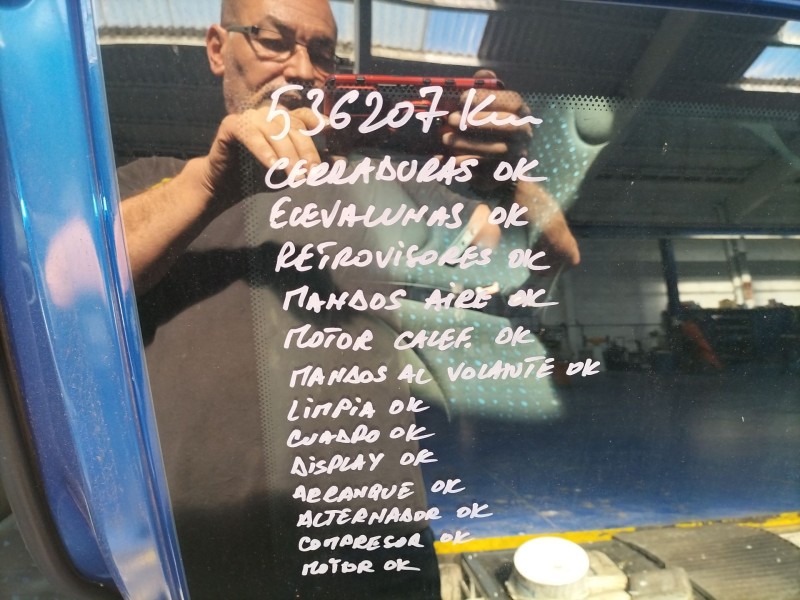 536207 Km
CERRADURAS OK
ELEVALUNAS OK
RETROVISORES OK
MANDOS AIRE OK
MOTOR CALEF. OK
MANDOS AL VOLANTE OK
LIMPIA OK
CUADRO OK
DISPLAY OK
ARRANQUE OK
ALTERNADOR OK
COMPRESOR OK
MOTOR OK